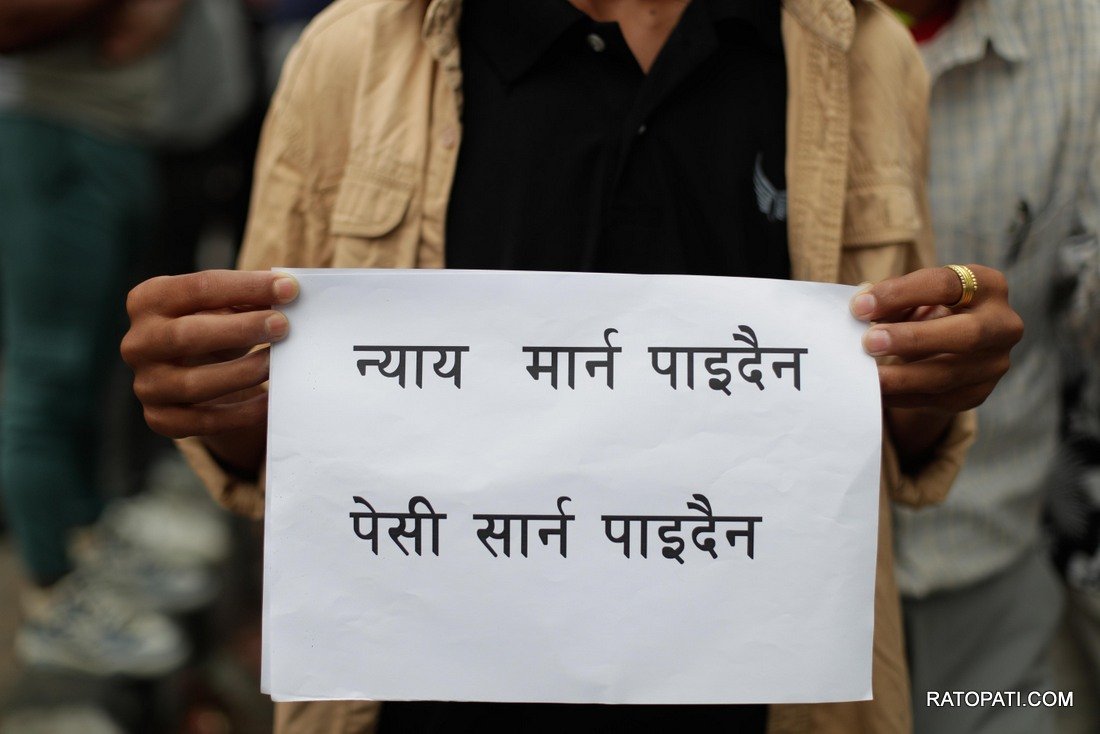 न्याय मार्न पाइदैन
पेसी सार्न पाइदैन
RATOPATI.COM